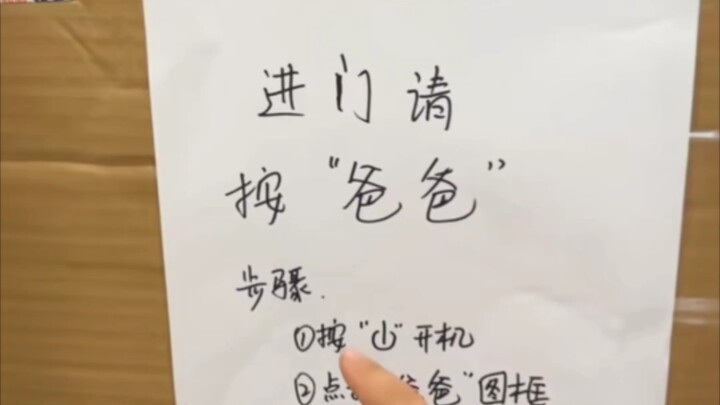 进门请
按“爸爸”
步骤.
①按“⏻”开机
②点 爸”图框